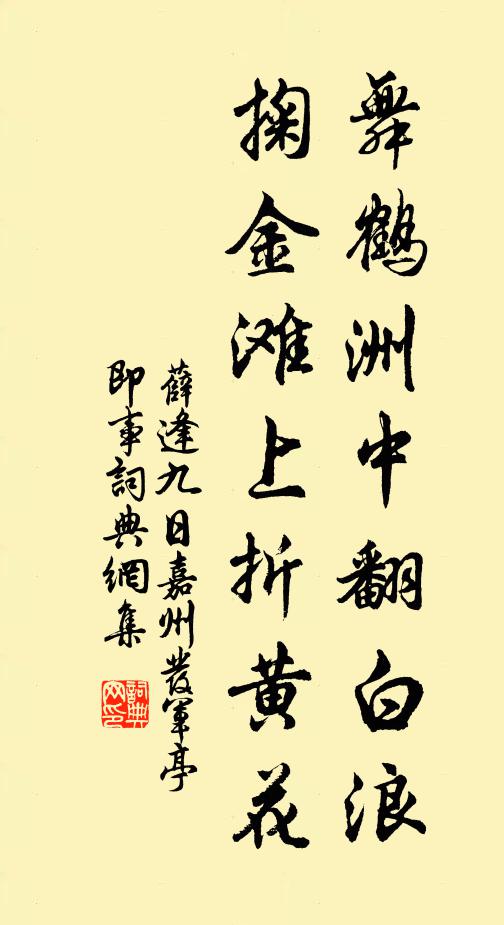 舞鶴洲中翻白浪
掬金滩上折黄花
薛逢九日嘉州發軍亭
即事詞典網集
詞典网印